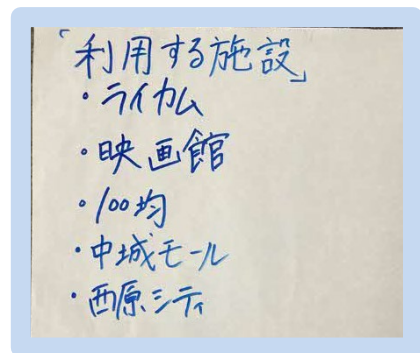 「利用する施設」
・ライカム
・映画館
・100均
・中城モール
・西原シティ